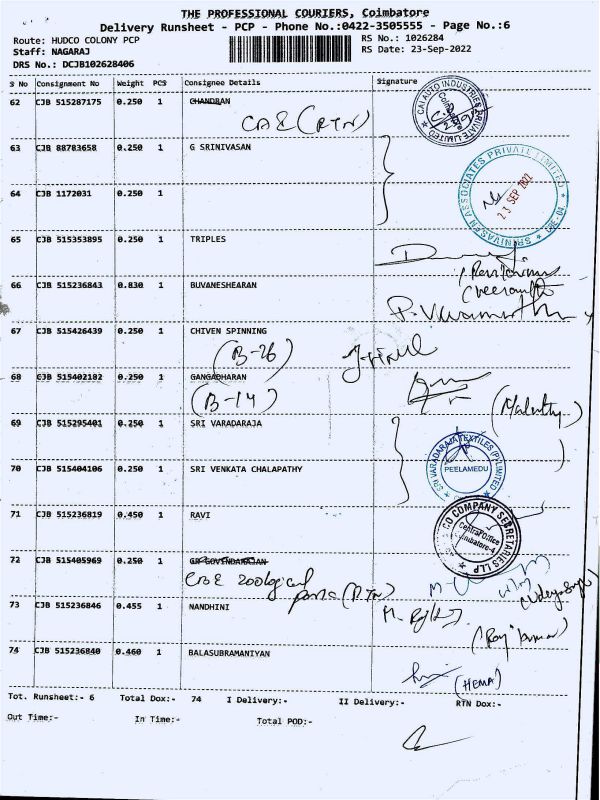 THE PROFESSIONAL COURIERS, Coimbatore
Delivery Runsheet - PCP - Phone No.:0422-3505555 - Page No.:6
Route: HUDCO COLONY PCP RS No.: 1026284
Staff: NAGARAJ RS Date: 23-Sep-2022
DRS No.: DCJB102628406
S No Consignment No Weight PCS Consignee Details Signature
62 CJB 515287175 0.250 1 CHANDRAN
CAI AUTO INDUSTRIES PRIVATE LIMITED
(RTN)
63 CJB 88783658 0.250 1 G SRINIVASAN
SRINIVASEN ASSOCIATES PRIVATE LIMITED
23 SEP 2022
64 CJB 1172031 0.250 1
65 CJB 515353895 0.250 1 TRIPLES
66 CJB 515236843 0.830 1 BUVANESHEARAN
67 CJB 515426439 0.250 1 CHIVEN SPINNING
(B-26)
68 CJB 515402102 0.250 1 GANGADHARAN
(B-14)
69 CJB 515295401 0.250 1 SRI VARADARAJA
SRI VARADARAJA TEXTILES (P) LIMITED
PEELAMEDU
70 CJB 515404106 0.250 1 SRI VENKATA CHALAPATHY
71 CJB 515236819 0.450 1 RAVI
CO COMPANY SECRETARIES LLP
Central Office
Coimbatore-4
72 CJB 515405969 0.250 1 GR GOVINDARAJAN
Zoological
(RTN)
73 CJB 515236846 0.455 1 NANDHINI
(Raj kumar)
74 CJB 515236840 0.460 1 BALASUBRAMANIYAN
(HEMA)
Tot. Runsheet:- 6 Total Dox:- 74 I Delivery:- II Delivery:- RTN Dox:-
Out Time:- In Time:- Total POD:-